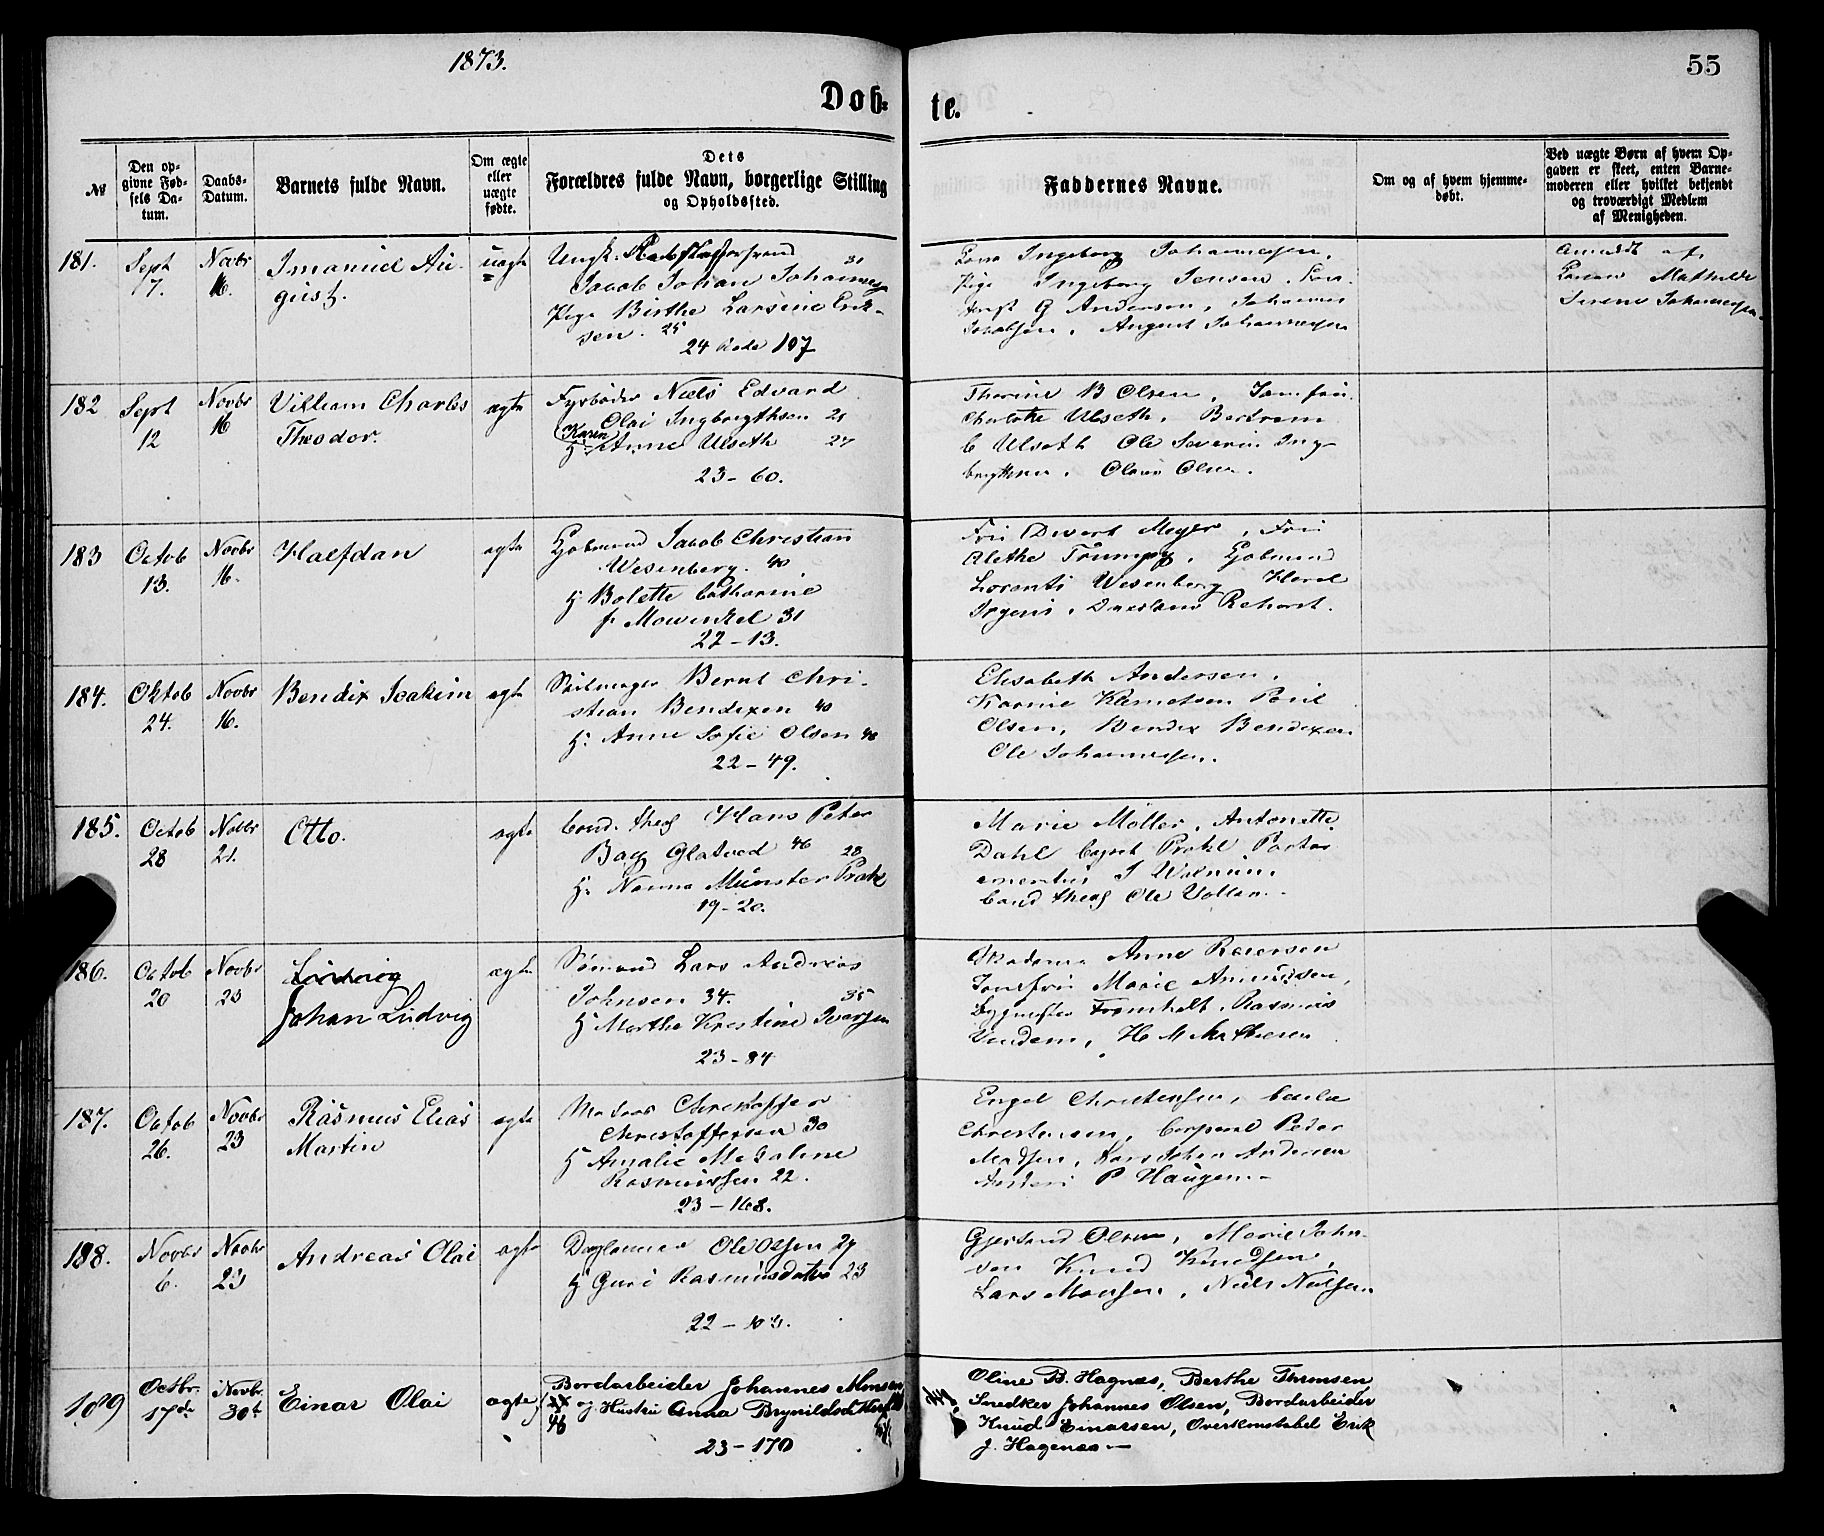 1873.
55
Døb-
te.
№
Den op-
givne Fød-
sels Da-
tum.
Daabs-
Datum.
Barnets fulde Navn.
Om ægte
eller
uægte
fødte.
Dets
Forældres fulde Navn, borgerlige Stilling
og Opholdssted.
Faddernes Navne.
Om og af hvem hjemme-
døbt.
Ved uægte Børn af hvem Op-
gaven er skeet, enten Barne-
moderen eller hvilket bekjendt
og troværdigt Medlem
af Menigheden.
181.
Sept
7.
Novbr
16.
Imanuel Au-
gust.
uægte
Ungk.
31
Jacob Johan Johannes
Pige Birthe Larsine Erik-
sen. 25
24 Rode 107
Ingeborg Johannesen,
Pige Ingeborg Jensen,
G Andersen, Johannes
Jacobsen, August Johannesen
Anmeldt af
Mathilde
Serene Johannesen
182
Sept
12
Novbr
16
Villiam Charles
Theodor.
ægte
Fyrbøder Niels Edvard
Olai Ingbrigthsen 21
Karen
H. Anne Ulseth 27
23 - 60.
Thorine B Olsen, Jomfru
Charlotte Ulseth, Bertram
C Ulseth Ole Severin Ing-
brigthsen, Olava Olsen.
183
Octob
13.
Novbr
16.
Halfdan
ægte
Kjøbmand Jacob Christian
Wesenberg. 40
H Bolette Catharine
f. Mowinkel 31
22 - 13.
Fru Divert Meyer, Fru
Alethe Trumpy, Kjøbmand
Lorents Wesenberg
Rehorst.
184.
Oktob
24.
Novbr
16.
Bendix Joakim
ægte
Seilmager Bernt Chri-
stian Bendixen 40
H. Anne Sofie Olsen 40
22 - 49.
Elisabeth Andersen,
Karnelsen Poul
Olsen, Bendix Bendixen
Ole Johannesen.
185.
Octob
28
Novbr
21.
Otto.
ægte
Cand. theol Hans Peter
Bag Glatved 46 28
H. Nanna Münster Prahl
19 - 20.
Marie Møller, Antonette
Dahl Prahl Pastor
emeritus J
Cand theol Ole Vollan.
186.
Octob
20
Novbr
23
Ludvig
Johan Ludvig
ægte
Sømand Lars Andreas
Johnsen 34. 35
H Marthe Kristine Iversen
23 - 84
Madame Anne Reiersen
Jomfru Marie Amundsen,
Bygmester Fromholt, Rasmus
Vindem, H M Mathiesen
187.
Octob
26.
Novbr
23
Rasmus Elias
Martin
ægte
Matros Christoffer
Christoffersen 30
H Amalie Malene
Rasmussen 22.
23 - 168.
Engel Christensen,
Christensen, Corporal Peder
Madsen, Lars Johan Andersen
P Haugen.
188.
Novbr
6.
Novbr
23
Andreas Olai
ægte
Daglønner Ole Olsen 29
H Guri Rasmusdatter 23
22 - 103.
Gjertrud Olsen, Marie John-
sen Knud Knudsen,
Lars Monsen, Niels Nielsen
189
Octbr.
17de
Novbr.
30te
Einar Olai
ægte
Bordarbeider Johannes Monsen
46 og Hustru Anna Brynildsdt
23 - 170
Oline B. Hagnæs, Berthe Thomsen
Snedker Johannes Olsen, Bordarbeider
Knud Einarsen, Overkonstabel Erik
J. Hagenæs